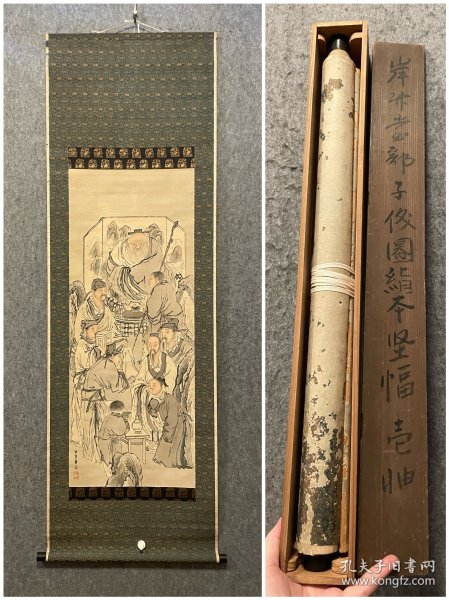 岸竹堂郭子儀圖絹本竪幅 壱軸
孔夫子旧书网
www.kongfz.com